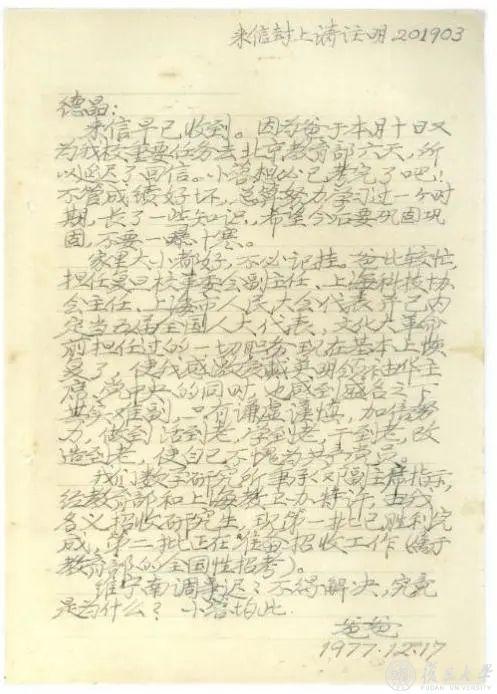 来信封上请注明201903
德晶：
来信早已收到。因为爸于本月十日又
为我校重要任务去北京教育部六天，所
以迟了回信。小 想必已考完了吧！
不管成绩好坏，总算努力学习过一个时
期，长了一些知识，希望今后要巩固巩
固，不要一曝十寒。
家里大小都好，不必记挂。爸比较忙，
担任复旦校革委会副主任、上海科技协
会主任、上海市人民大会代表并已内
定当五届全国人大代表，文化大革命
前担任过的一切职务现在基本上恢
复了，使我感激英明领袖华主
席、党中央的同时，也感到盛名之下
其实难副，只有谦虚谨慎，加倍努
力，做到活到老，学到老，干到老，改
造到老，使自己不愧为共产党员。
我们数学研究所秉承邓副主席指示，
经教育部和上海教卫办特许，由我
名义招收研究生，现第一批已胜利完
成，第二批正在准备招收工作（属于
教育部的全国性招考）。
维宁南调事迟迟不得解决，究竟
是为什么？
爸爸
1977.12.17
復旦大學
FUDAN UNIVERSITY